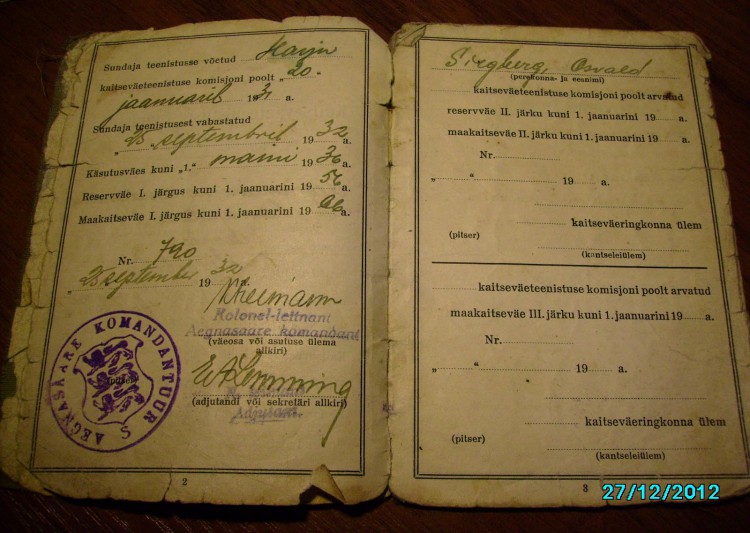 Suudaja teenistusse võetud Harju
kaitseväeteenistuse komisjoni poolt „20“
jaanuaril 1931 a.
Sundaja teenistusest vabastatud
„25 septembril 1932
Käsutusväes kuni „1.“ maini 1936 a.
Reservväe I. järgus kuni 1. jaanuarini 1956 a.
Maakaitseväe I. järgus kuni 1. jaanuarini 1966 a.
Nr. 790
„25 september 1932 a.
Kolonel-leitnant
Aegnasaare komandant
(väeosa või asutuse ülema
allkiri)
E. Lemming
(adjutandi või sekretäri allkiri)
Adjutant
AEGNASAARE KOMANDANTUUR
(pitser)
2
Siegberg, Osvald
(perekonna- ja eesnimi)
kaitseväeteenistuse komisjoni poolt arvatud
reservväe II. järku kuni 1. jaanuarini 19 a.
maakaitseväe II. järku kuni 1. jaanuarini 19 a.
Nr.
„ “ 19 a.
kaitseväeringkonna ülem
(pitser)
(kantseleiülem)
kaitseväeteenistuse komisjoni poolt arvatud
maakaitseväe III. järku kuni 1. jaanuarini 19 a.
Nr.
„ “ 19 a.
kaitseväeringkonna ülem
(pitser)
(kantseleiülem)
3
27/12/2012